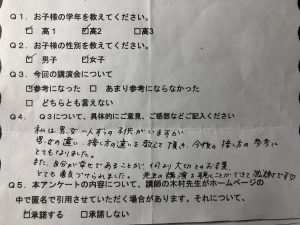 Q1．お子様の学年を教えてください。
☑高1　☑高2　□高3
Q2．お子様の性別を教えてください。
☑男子　☑女子
Q3．今回の講演会について
☑参考になった　□あまり参考にならなかった
□どちらとも言えない
Q4．Q3について、具体的にご意見、ご感想などご記入ください
私は男女一人ずつの子供がいますが
男女の違い、接し方の違いを教えて頂き、今後の接し方の参考に
とてもなりました。
また、自分が幸せであることが何より大切とのお言葉
とても勇気づけられました。先生の講演を聴くことができて感謝です♡
Q5．本アンケートの内容について、講師の木村先生がホームページの
中で匿名で引用させていただく場合があります。それについて、
☑承諾する　□承諾しない